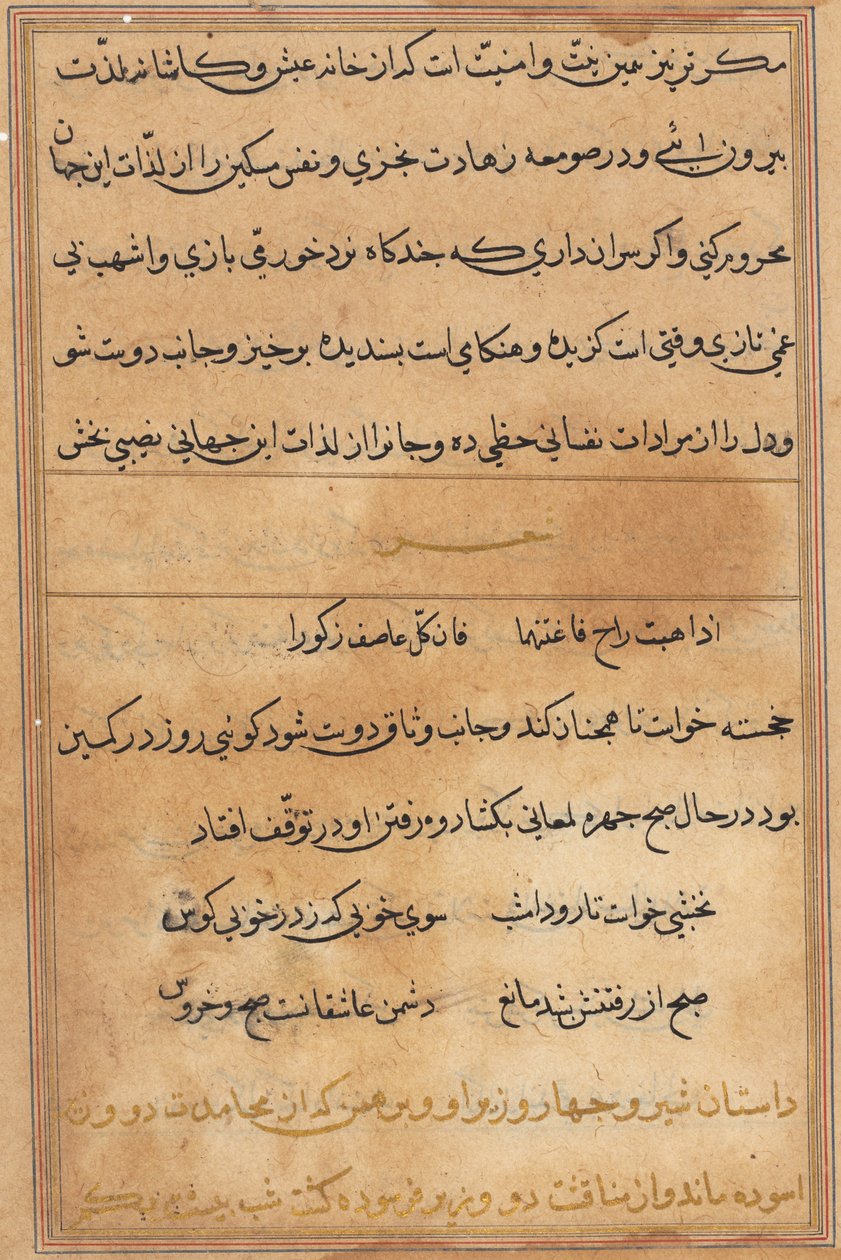 مكر ترا نيز همين نيّت و امنيّت است كه از خانه عيش و كاشانه لذّت
بيرون ائي و در صومعه زهادت بخزي و نفس مسكين را از لذّات اين جهان
محروم كني و اكر سر ان داري كه جند كاه نرد خورمّي بازي و اشهب بي
غمي تازي وقتي است كزيده و هنكامي است بسنديده برخيز و جانب دوست شو
و دل را از مرادات نفساني حظي ده و جانرا از لذات اين جهاني نصيبي بخش
شعر
اذا هبت راح فاغتنها فان كلّ عاصف زكورا
خجسته خواست تا همجنان كند و جانب وثاق دوست شود كوئي روز در كمين
بود در حال صبح جهره لمعاني بكشاد و رفتن او در توقّف افتاد
نخشبي خواست تا رود امشب سوي خوبي كه زد ز خوبي كوس
صبح از رفتنش بشد مانع دشمن عاشقانست صبح و خروس
داستان شير و جهار وزير او و برهمن كه از محامدت دو وزير
اسوده ماند و از مناقشت دو وزير فرسوده كشت شب بيست